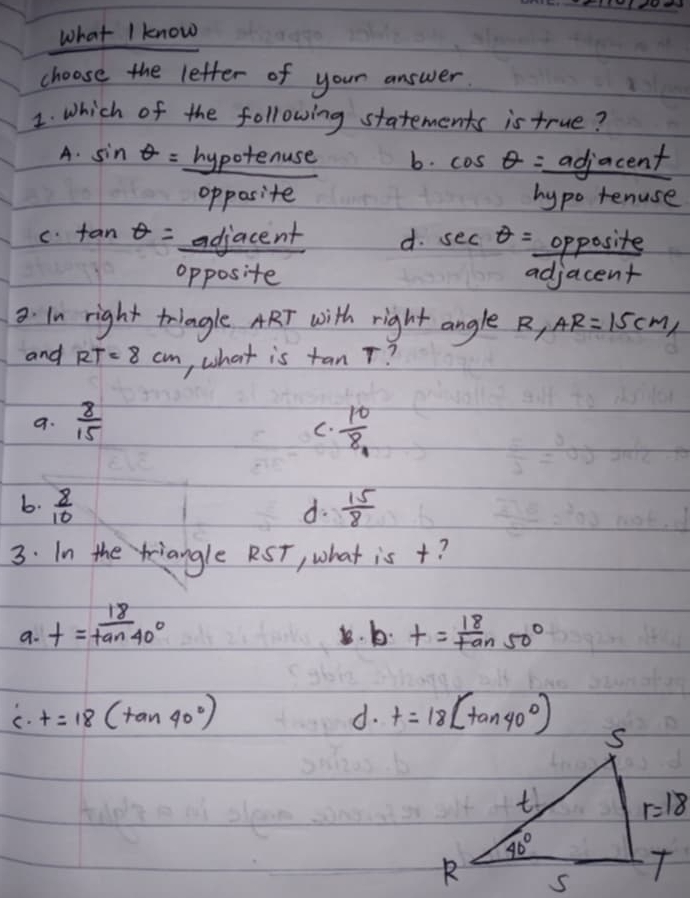 What I know
choose the letter of your answer.
1. Which of the following statements is true?
A. sin θ = hypotenuse / opposite b. cos θ = adjacent / hypotenuse
c. tan θ = adjacent / opposite d. sec θ = opposite / adjacent
2. In right triagle ART with right angle R, AR = 15cm,
and RT = 8 cm, what is tan T?
a. 8/15 c. 10/8
b. 8/10 d. 15/8
3. In the triangle RST, what is t?
a. t = 18/tan 40° b. t = 18/tan 50°
c. t = 18 (tan 90°) d. t = 18 (tan 40°)
S
t r=18
40°
R S T